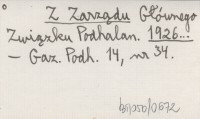 Z Zarządu Głównego
Związku Podhalan. 1926...
— Gaz. Podh. 14, nr 34.